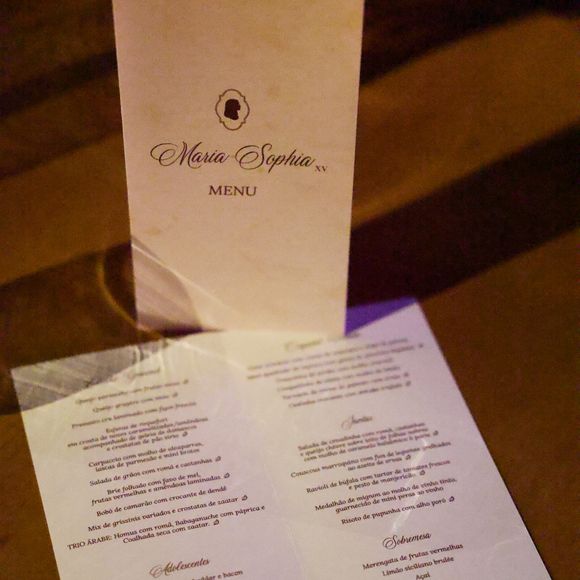 Maria Sophia XV
MENU
Queijo gruyère com
Presunto cru laminado com figos frescos
Esferas de roquefort
em crosta de nozes caramelizadas/amêndoas
acompanhado de geleia de damascos
e crostatas de pão sírio
Carpaccio com molho de alcaparras,
lascas de parmesão e mini brotos
Salada de grãos com romã e castanhas
Brie folhado com faso de mel,
frutas vermelhas e amêndoas laminadas
Bobó de camarão com crocante de dendê
Mix de grissinis variados e crostatas de zaatar
TRIO ÁRABE: Homus com romã, Babaganuche com páprica e
Coalhada seca com zaatar.
Adolescentes
e bacon
Jantar
Salada de
e queijo chèvre sobre leito de folhas nobres
com molho de caramelo balsâmico à parte
Couscous marroquino com fun de legumes grelhados
ao azeite de ervas
Ravioli de búfala com tartar de tomates frescos
e pesto de manjericão
Medalhão de mignon ao molho de vinho tinto,
guarnecido de mini peras ao vinho
Risoto de pupunha com alho poró
Sobremesa
Merengata de frutas vermelhas
Limão siciliano brulée
Açaí